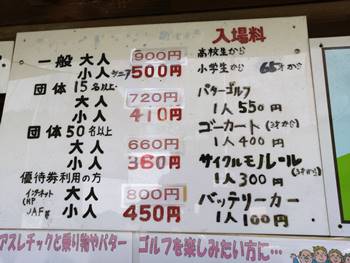 入場料
一般 大人 900円 高校生から
小人 シニア 500円 小学生から 65才から
団体 15名以上 大人 720円
小人 410円
団体 50名以上 大人 660円
小人 360円
優待券利用の方 大人 800円
インターネット HP JAF等 小人 450円
パターゴルフ
1人 550円
ゴーカート(3才から)
1人 400円
サイクルモノレール(3才から)
1人 300円
バッテリーカー
1人 100円
アスレチックと乗り物やパター
ゴルフを楽しみたい方に…